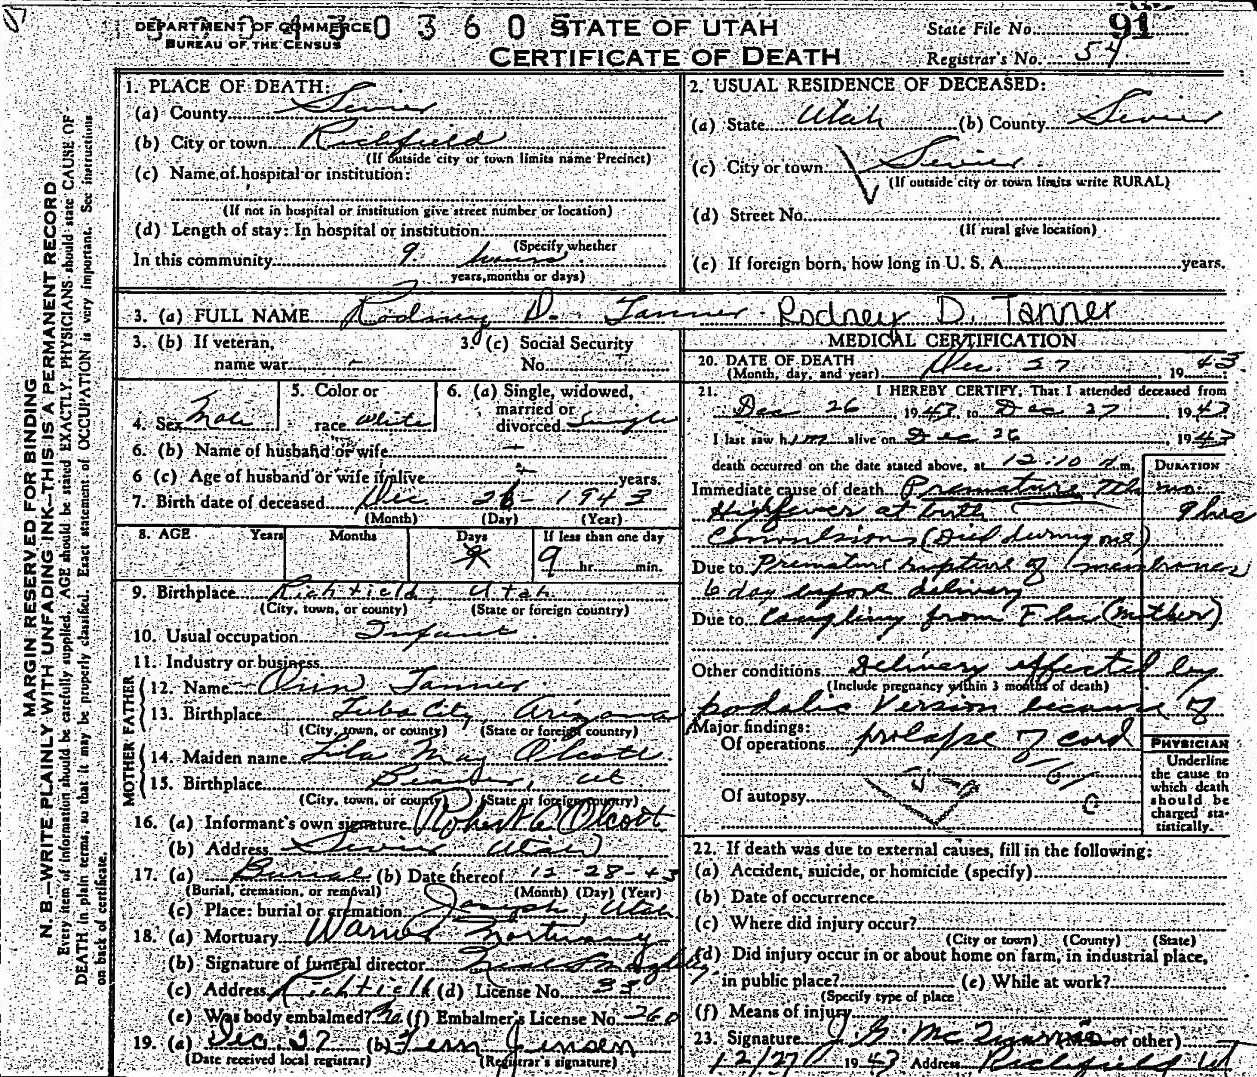 DEPARTMENT OF COMMERCE
BUREAU OF THE CENSUS
0 3 6 0 5
STATE OF UTAH
CERTIFICATE OF DEATH
State File No. 91
Registrar's No. 54
MARGIN RESERVED FOR BINDING
N. B.—WRITE PLAINLY WITH UNFADING INK—THIS IS A PERMANENT RECORD
Every item of information should be carefully supplied. AGE should be stated EXACTLY. PHYSICIANS should state CAUSE OF
DEATH in plain terms, so that it may be properly classified. Exact statement of OCCUPATION is very important. See instructions
on back of certificate.
1. PLACE OF DEATH:
(a) County Sevier
(b) City or town Richfield
(If outside city or town limits name Precinct)
(c) Name of hospital or institution:
(If not in hospital or institution give street number or location)
(d) Length of stay: In hospital or institution
(Specify whether
In this community 9 hours
years, months or days)
2. USUAL RESIDENCE OF DECEASED:
(a) State Utah (b) County Sevier
(c) City or town Sevier
(If outside city or town limits write RURAL)
(d) Street No.
(If rural give location)
(e) If foreign born, how long in U. S. A. years.
3. (a) FULL NAME Rodney D. Tanner Rodney D. Tanner
3. (b) If veteran,
name war -
3. (c) Social Security
No.
4. Sex Male
5. Color or
race White
6. (a) Single, widowed,
married or
divorced Single
6. (b) Name of husband or wife —
6 (c) Age of husband or wife if alive years.
7. Birth date of deceased Dec 26 - 1943
(Month) (Day) (Year)
8. AGE Years Months Days If less than one day
9 hr. min.
9. Birthplace Richfield, Utah
(City, town, or county) (State or foreign country)
10. Usual occupation Infant
11. Industry or business
FATHER
12. Name Orin Tanner
13. Birthplace Tuba City, Arizona
(City, town, or county) (State or foreign country)
MOTHER
14. Maiden name Lila May Olcott
15. Birthplace Beaver, Ut
(City, town, or county) (State or foreign country)
16. (a) Informant's own signature Robert Olcott
(b) Address Sevier Utah
17. (a) Burial (b) Date thereof 12-28-43
(Burial, cremation, or removal) (Month) (Day) (Year)
(c) Place: burial or cremation Joseph, Utah
18. (a) Mortuary Mortuary
(b) Signature of funeral director
(c) Address Richfield (d) License No. 33
(e) Was body embalmed? No (f) Embalmer's License No. 260
19. (a) Dec. 27 (b) Fern Jensen
(Date received local registrar) (Registrar's signature)
MEDICAL CERTIFICATION
20. DATE OF DEATH Dec. 27 1943
(Month, day, and year)
21. I HEREBY CERTIFY, That I attended deceased from
Dec 26, 1943 to Dec 27, 1943
I last saw him alive on Dec 26, 1943
death occurred on the date stated above, at 12:10 A.m.
DURATION
Immediate cause of death Premature 7th mo.
High fever at birth 9 hrs
Convulsions (Died during one)
Due to Premature rupture of membranes
6 day before delivery
Due to Coughing from Flu (Mother)
Other conditions Delivery effected by
(Include pregnancy within 3 months of death)
podalic Version because of
Major findings:
Of operations prolapse of cord
Of autopsy
PHYSICIAN
Underline
the cause to
which death
should be
charged sta-
tistically.
22. If death was due to external causes, fill in the following:
(a) Accident, suicide, or homicide (specify)
(b) Date of occurrence
(c) Where did injury occur?
(City or town) (County) (State)
(d) Did injury occur in or about home on farm, in industrial place,
in public place? (e) While at work?
(Specify type of place
(f) Means of injury
23. Signature J. G. Mc or other)
12/27 1943 Address Richfield Ut